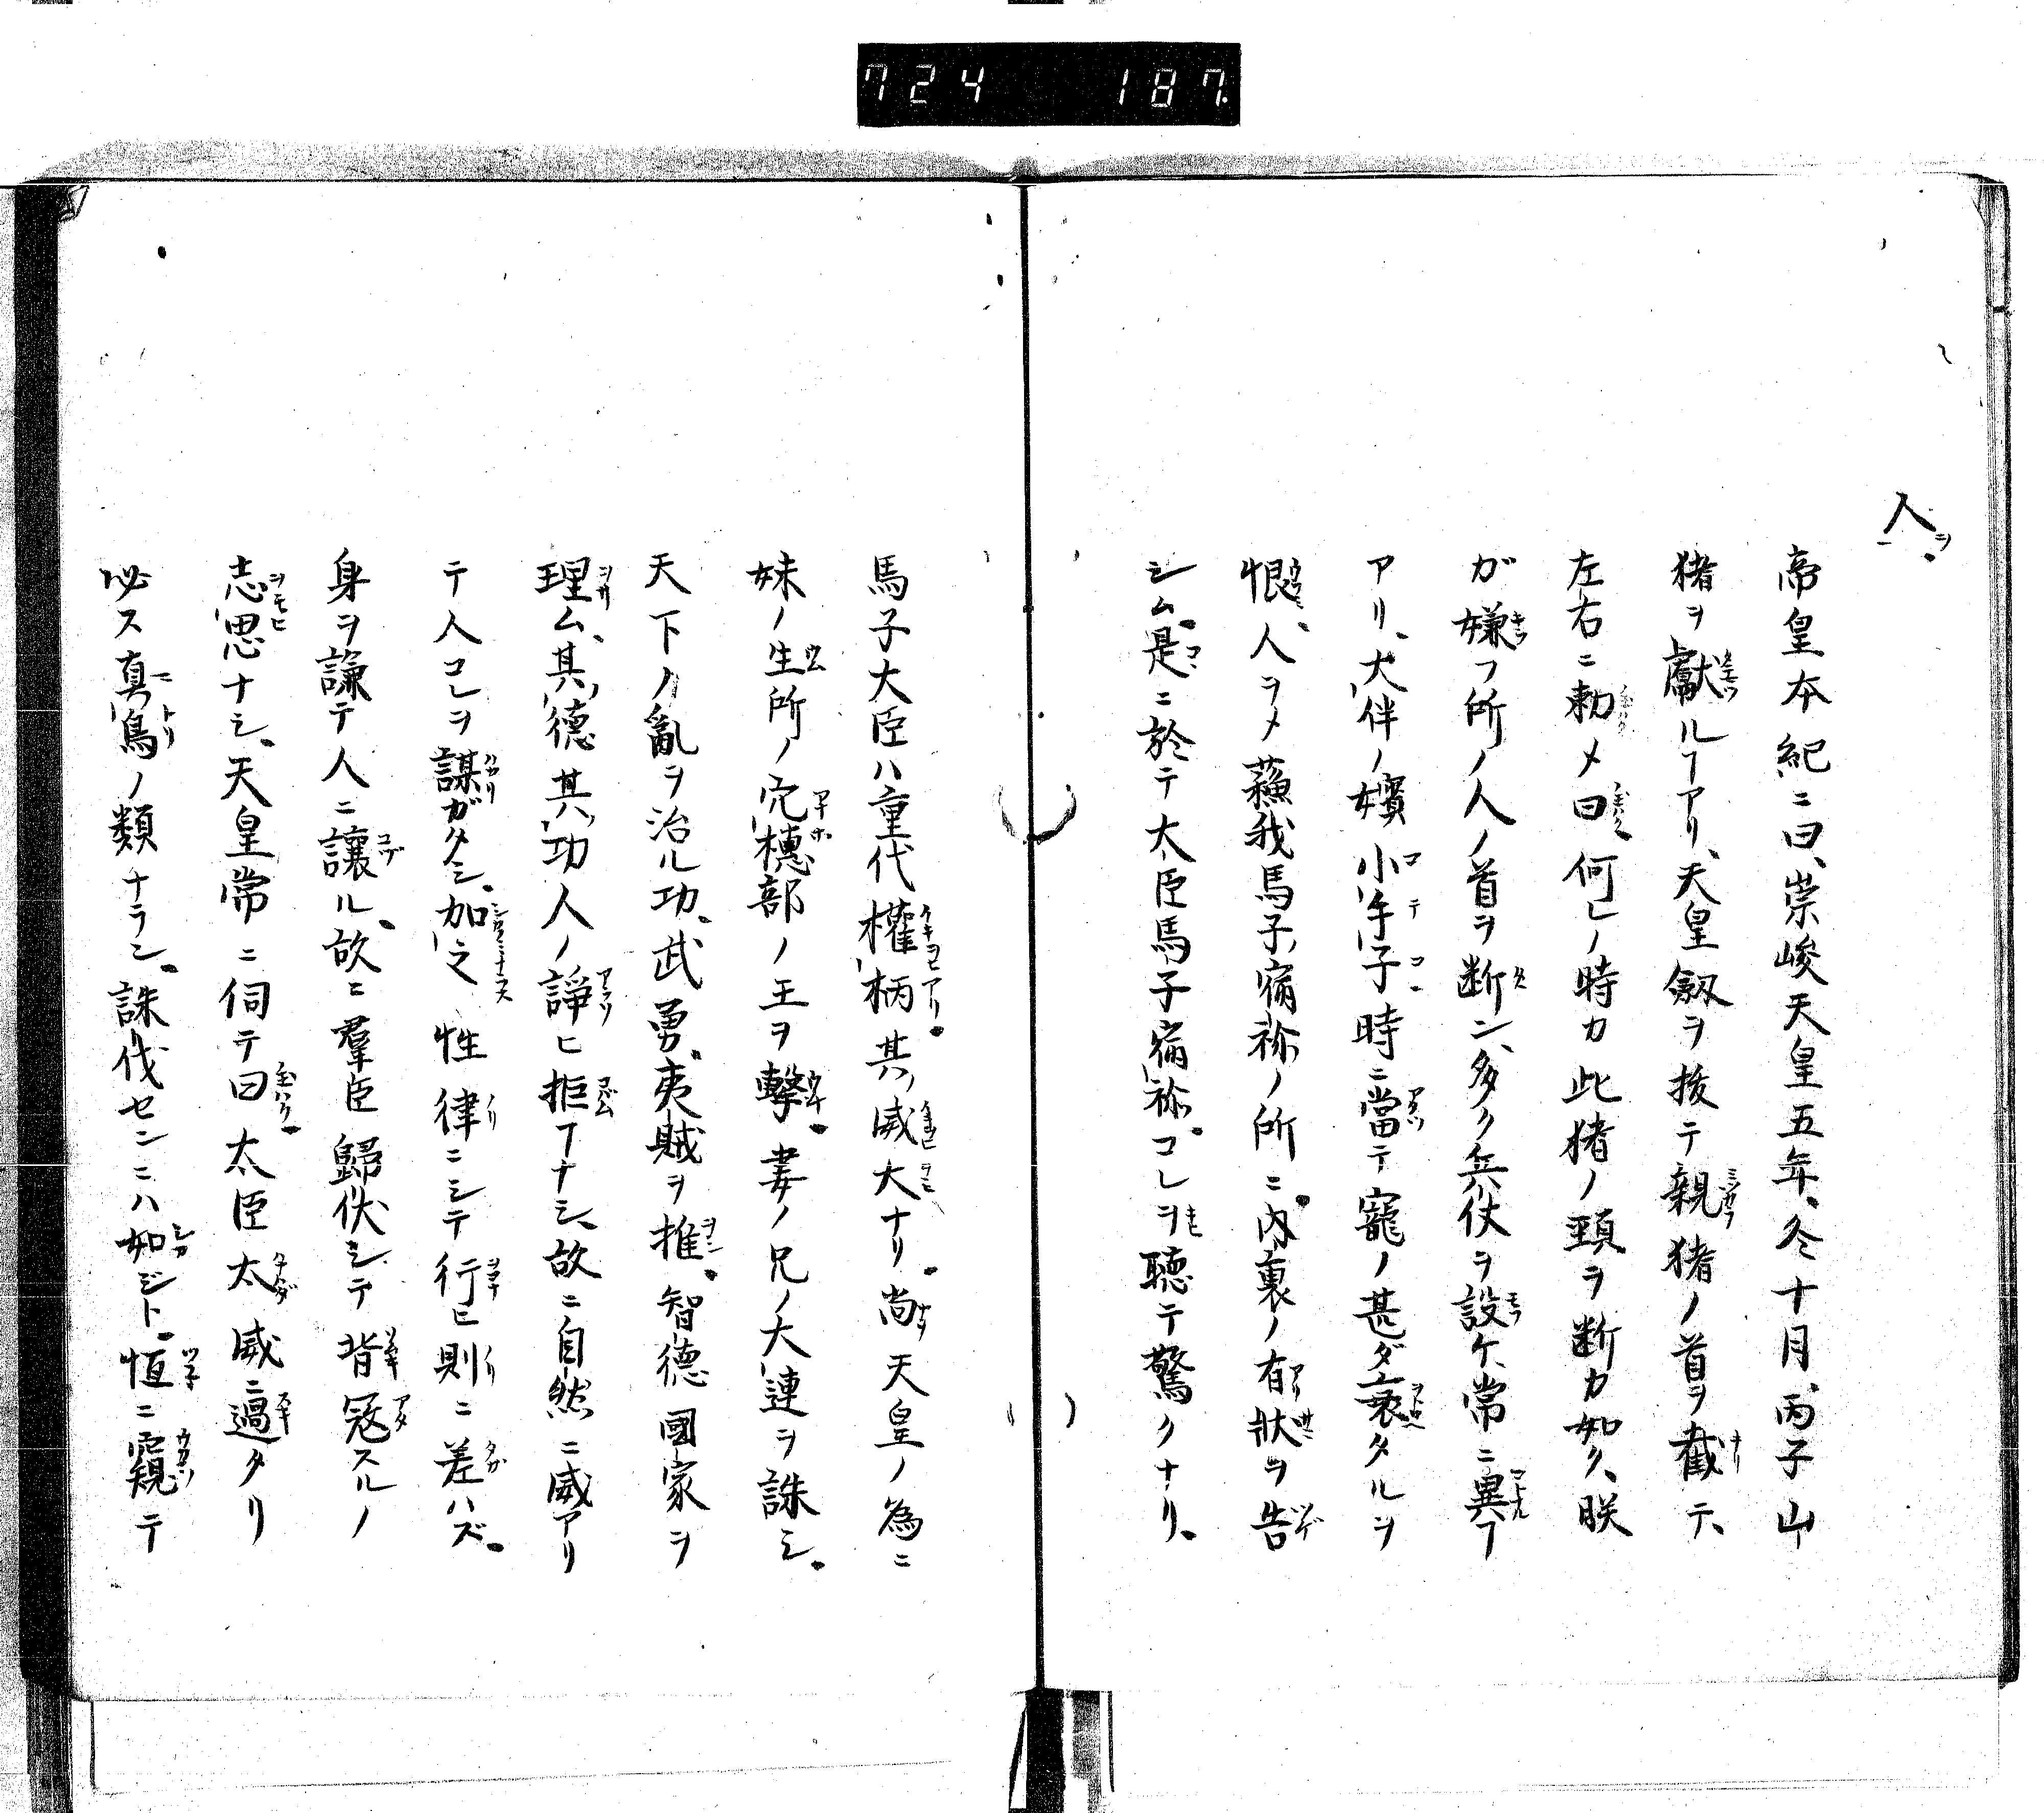 724 187
人ヲ
帝皇本紀ニ曰、崇峻天皇五年、冬十月、丙子山
猪ヲ獻ルヿアリ、天皇劔ヲ拔テ親猪ノ首ヲ截テ、
左右ニ勅メ曰何レノ時カ此猪ノ頚ヲ断カ如ク、朕
ガ嫌フ所ノ人ノ首ヲ断ン、多ク兵仗ヲ設ケ、常ニ異ヿ
アリ、大伴ノ嬪小手子時ニ當テ寵ノ甚ダ衰タルヲ
恨、人ヲメ蘓我馬子宿祢ノ所ニ内裏ノ有狀ヲ告
シム是ニ於テ大臣馬子宿祢コレヲ聴テ驚クナリ、
馬子大臣ハ重代權柄其威大ナリ。尚天皇ノ為ニ
妹ノ生所ノ穴穗部ノ王ヲ擊。妻ノ兄ノ大連ヲ誅シ。
天下ノ亂ヲ治ル功。武勇。夷賊ヲ推。智德國家ヲ
理ム、其德其功人ノ諍ヒ拒ヿナシ、故ニ自然ニ威アリ
テ人コレヲ謀ガタシ、加之性律ニシテ行ヒ則ニ差ハズ。
身ヲ謙テ人ニ讓ル。故ニ羣臣歸伏シテ背冦スルノ
志思ナシ、天皇常ニ伺テ曰太臣太威ニ過タリ
必ス真鳥ノ類ナラン。誅伐センニハ如ジト。恒ニ窺テ